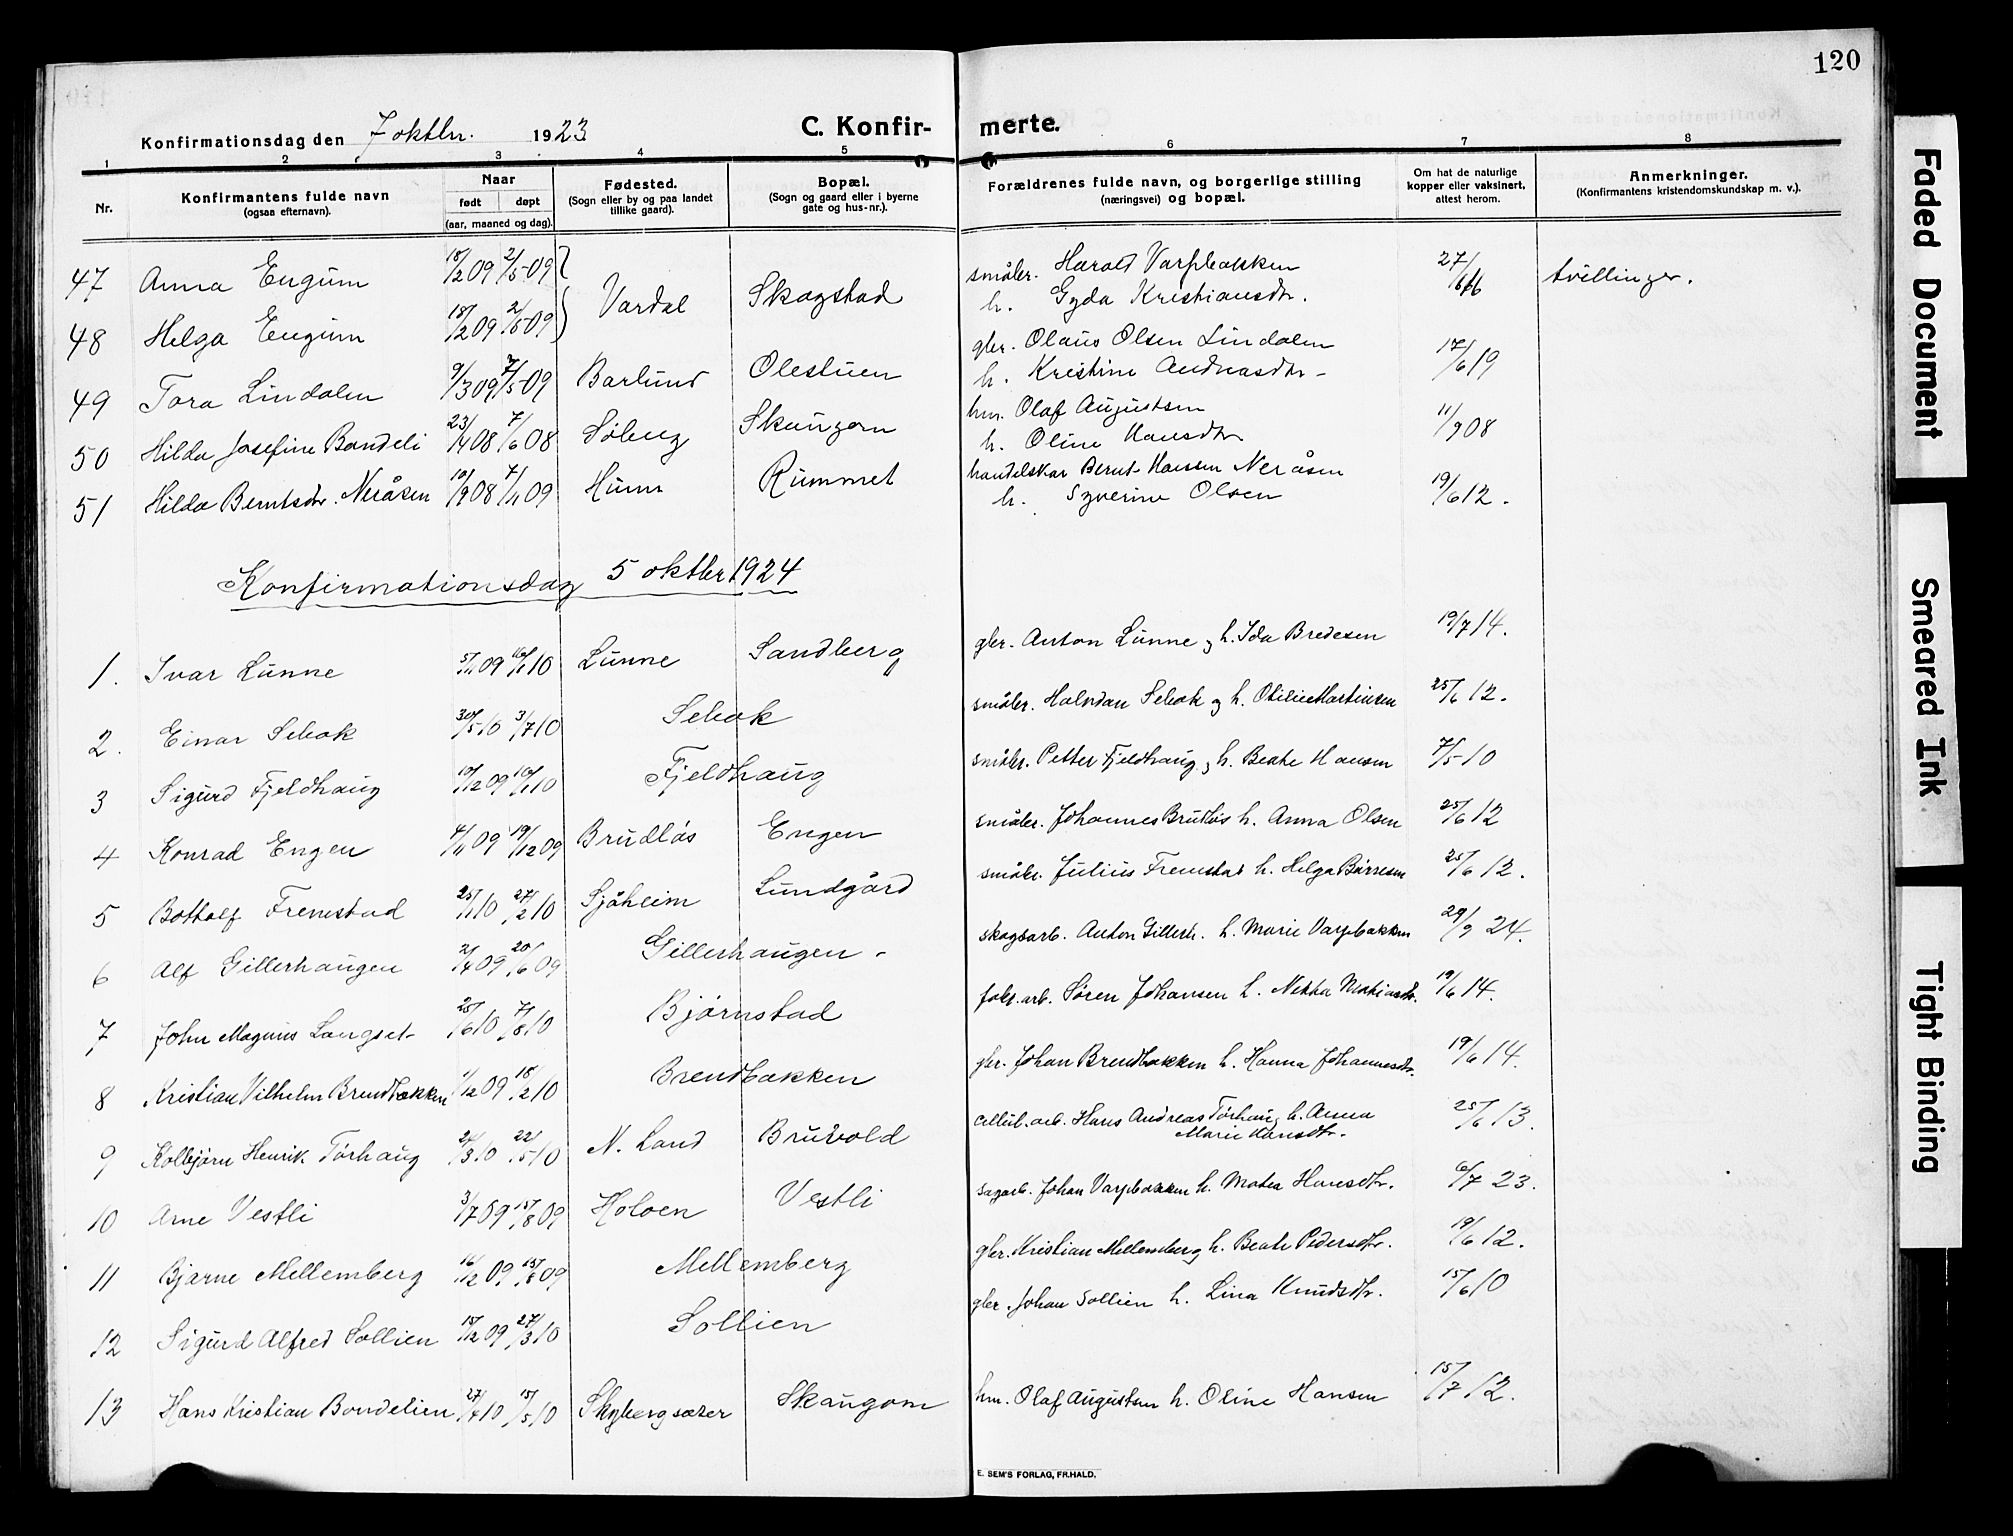 120
Konfirmationsdag den 7 oktbr. 1923 C. Konfirmerte.
1 2 3 4 5 6 7 8
Nr. Konfirmantens fulde navn (ogsaa efternavn). Naar født døpt (aar, maaned og dag). Fødested. (Sogn eller by og paa landet tillike gaard). Bopæl. (Sogn og gaard eller i byerne gate og hus-nr.). Forældrenes fulde navn, og borgerlige stilling (næringsvei) og bopæl. Om hat de naturlige kopper eller vaksinert, attest herom. Anmerkninger. (Konfirmantens kristendomskundskap m. v.).
47 Anna Engum 18/2 09 2/5 09 Vardal Skogstad småbr. Harald Varpbakken h. Gyda Kristiansdtr. 27/6 16 tvillinger.
48 Helga Engum 18/2 09 2/5 09
49 Tora Lindalen 9/3 09 7/5 09 Barlund Olestuen gbr. Olaus Olsen Lindalen h. Kristine Andreasdtr 17/6 19
50 Hilda Josefine Bondeli 23/4 08 7/6 08 Søberg Skungom hm. Olaf Augustsen h. Oline Hansdtr 11/9 08
51 Hilda Berntsdtr. Neråsen 10/9 08 7/11 09 Hunn Rummet handelskar Bernt Hansen Neråsen h. Syverine Olsen 19/6 12.
Konfirmationsdag 5 oktbr 1924
1. Ivar Lunne 5/11 09 16/1 10 Lunne Sandberg gbr. Anton Lunne og h. Ida Bredesen 19/7 14.
2. Einar Sebak 30/5 10 3/7 10 Sebak småbr. Halvdan Sebak og h. Otilie Martinsen 25/6 12.
3 Sigurd Fjeldhaug 10/12 09 16/1 10 Fjeldhaug småbr. Petter Fjeldhaug og h. Beate Hansen 7/5 10
4 Konrad Engen 4/11 09 19/12 09 Brudløs Engen småbr. Johannes Brudløs h. Anna Olsen 25/6 12
5 Bottolf Fremstad 25/1 10 27/2 10 Sjåheim Lundgård småbr. Julius Fremstad h. Helga Børresen 25/6 12.
6 Alf Gillerhaugen 2/4 09 20/6 09 Gillerhaugen - skogsarb. Anton Gillerh. h. Marie Varpbakken 29/9 24.
7 John Magnus Langset 25/6 10 7/8 10 Bjørnstad fabr. arb. Søren Johansen h. Nekka Matiasdtr. 19/6 14.
8 Kristian Vilhelm Brendbakken 1/12 09 18/2 10 Brendbakken gbr. Johan Brendbakken h. Hanna Johannesdtr. 19/6 14.
9 Kolbjørn Henrik Torhaug 24/3 10 22/5 10 N. Land Bruvold cellul. arb. Hans Andreas Torhaug h. Anna Marie Hansdtr. 25/6 13.
10 Arne Vestli 3/7 09 15/8 09 Holoen Vestli sagarb. Johan Varpbakken h. Matea Hansdtr. 6/7 23.
11 Bjarne Mellemberg 16/12 09 Mellemberg gbr. Kristian Mellemberg h. Beate Pedersdtr. 19/6 12.
12 Sigurd Alfred Sollien 15/12 09 27/3 10 Sollien gbr. Johan Sollien h. Lina Knudsdtr. 15/6 10
13 Hans Kristian Bondelien 27/4 10 15/5 10 Skybergsæter Skaugom hm. Olaf Augustsen h. Oline Hansen 15/7 12.
E. SEM'S FORLAG, FR.HALD.
Faded Document
Smeared Ink
Tight Binding